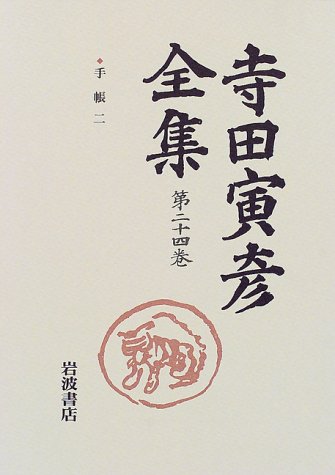 寺田寅彦
全集
第二十四巻
◆手帳二
岩波書店